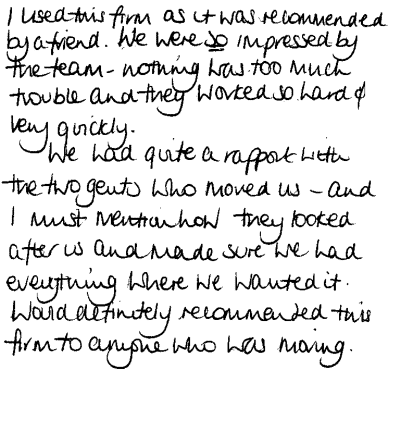 I used this firm as it was recommended
by a friend. We were so impressed by
the team - nothing was too much
trouble and they worked so hard &
very quickly.
We had quite a rapport with
the two gents who moved us - and
I must mention how they looked
after us and made sure we had
everything where we wanted it.
Would definitely recommended this
firm to anyone who was moving.